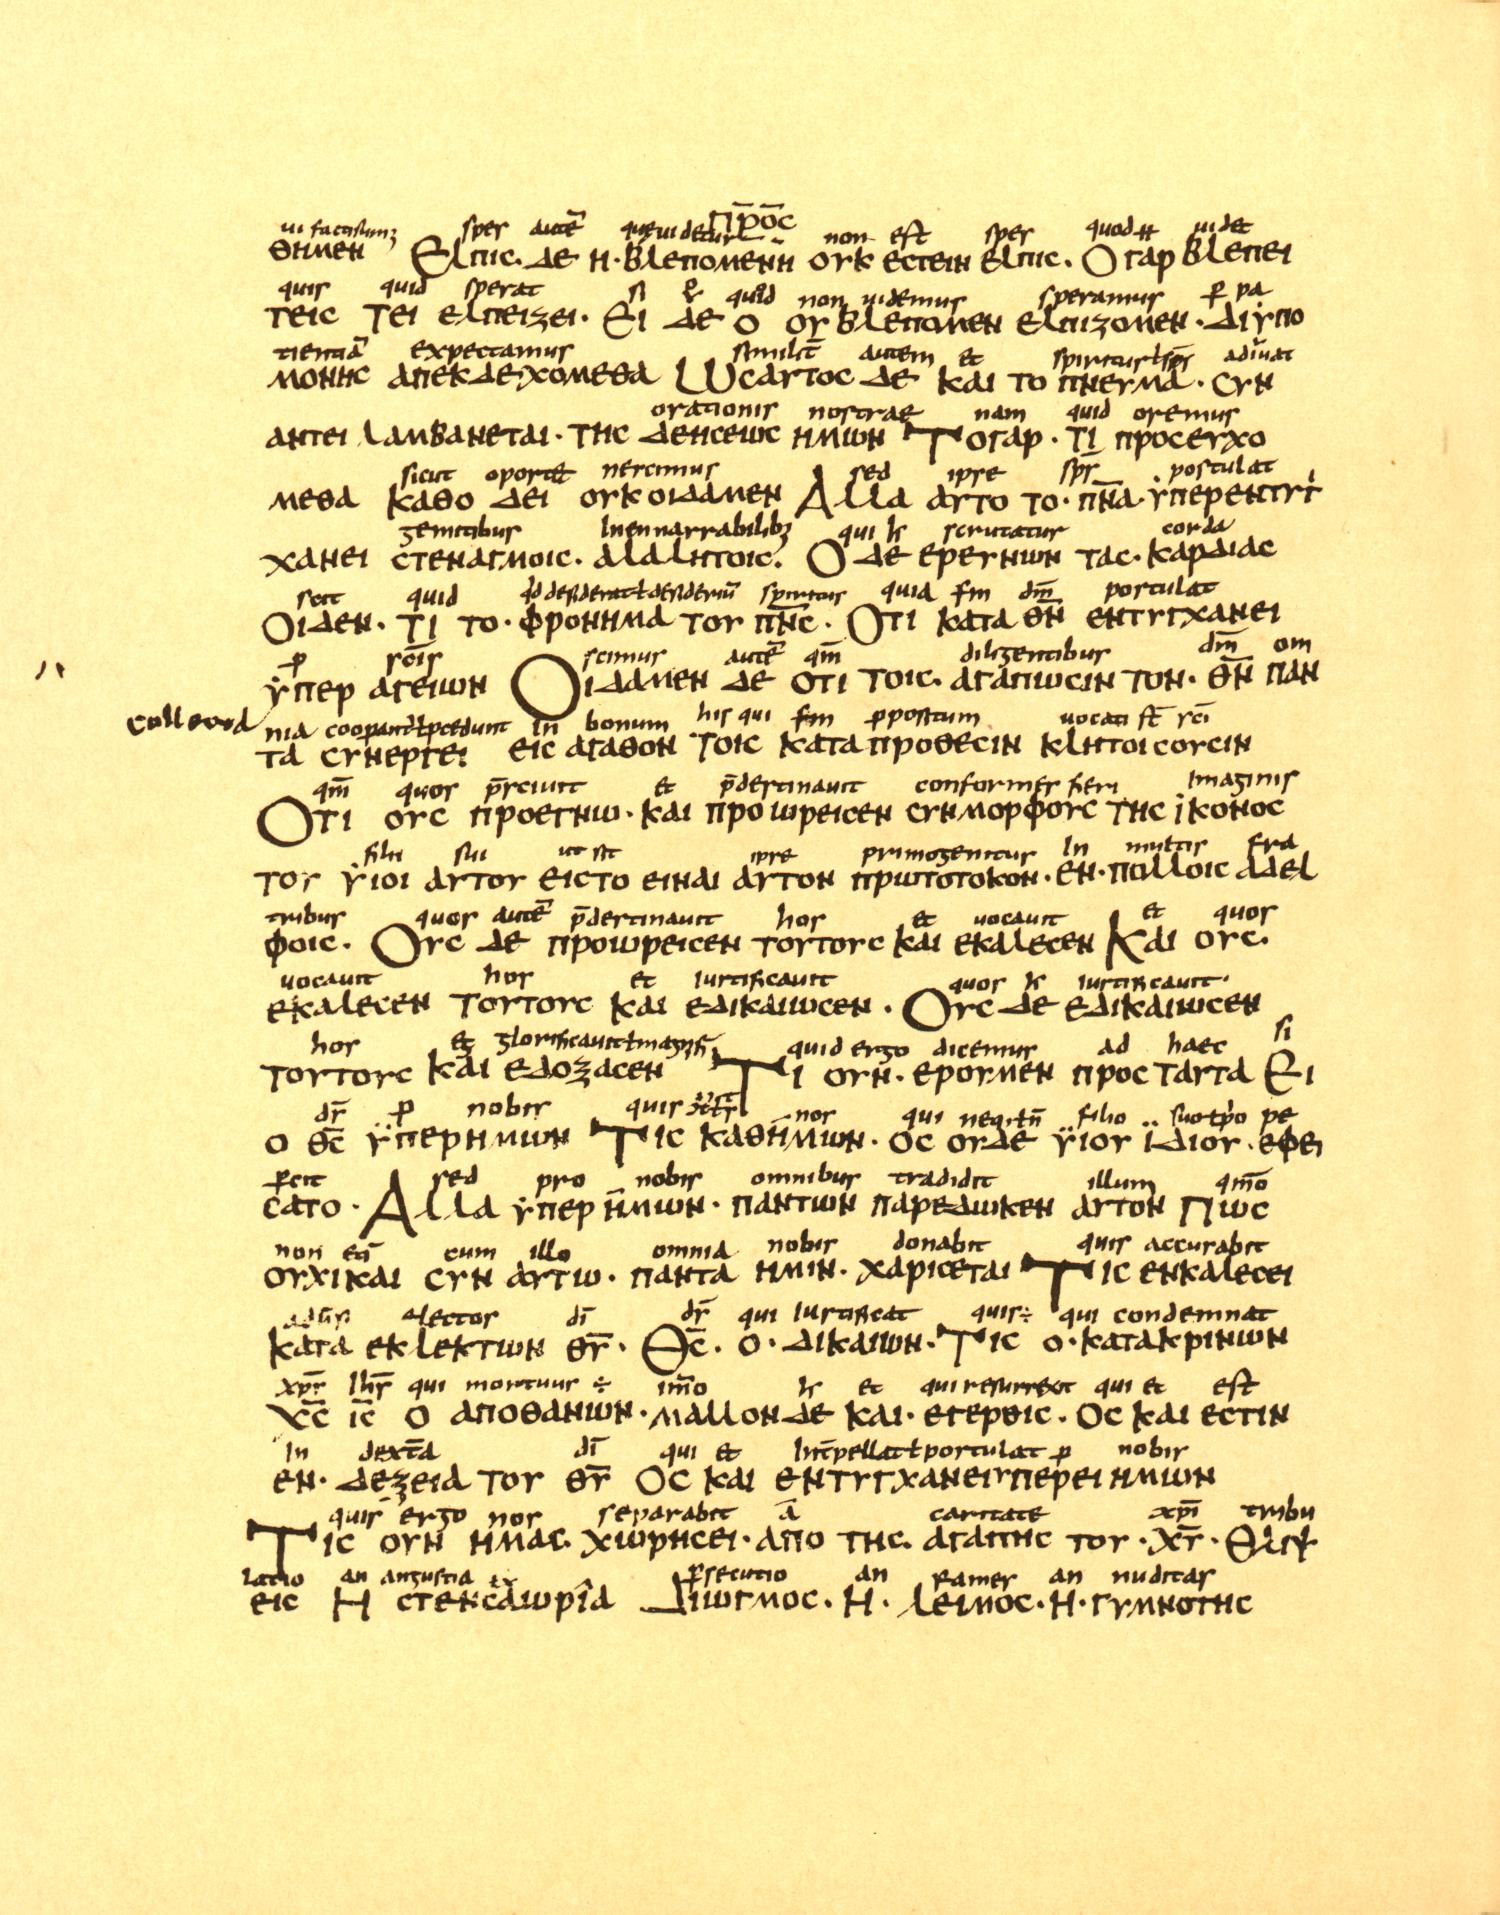 ΠΡΟC
ui facti sumus spes autē que uidetur non est spes quod uidet
ΘΗΜΕΝ ΕΛΠΙC. ΔΕ Η·ΒΛΕΠΟΜΕΝΗ ΟΥΚ ΕCΤΕΙΝ ΕΛΠΙC. ΟΓΑΡ ΒΛΕΠΕΙ
quis quid sperat si quod non uidemus speramus p pa
ΤΕΙC ΤΕΙ ΕΛΠΕΙΖΕΙ· ΕΙ ΔΕ Ο ΟΥΒΛΕΠΟΜΕΝ ΕΛΠΙΖΟΜΕΝ·ΔΙΥΠΟ
tientiā expectamus similit̄ autem et spiritus adiuuat
ΜΟΝΗC ΑΠΕΚΔΕΧΟΜΕΘΑ ΩCΑΥΤΟC ΔΕ ΚΑΙ ΤΟ ΠΝΕΥΜΑ· CΥΝ
orationis nostrae nam quid oremus
ΑΝΤΕΙ ΛΑΜΒΑΝΕΤΑΙ·ΤΗC ΔΕΗCΕΩC ΗΜΩΝ ΤΟΓΑΡ·ΤΙ ΠΡΟCΕΥΧΟ
sicut oportet nescimus sed ipse sp̄s postulat
ΜΕΘΑ ΚΑΘΟ ΔΕΙ ΟΥΚΟΙΔΑΜΕΝ ΑΛΛΑ ΑΥΤΟ ΤΟ·ΠΝ̄Α·ΥΠΕΡΕΝΤΥΓ
gemitibus Inennarrabilib; qui scrutatur corda
ΧΑΝΕΙ CΤΕΝΑΓΜΟΙC. ΑΛΑΛΗΤΟΙC. Ο ΔΕ ΕΡΕΥΝΩΝ ΤΑC·ΚΑΡΔΙΑC
scit quid spiritus quia dm̄ postulat
ΟΙΔΕΝ·ΤΙ ΤΟ·ΦΡΟΝΗΜΑ ΤΟΥ ΠΝ̄C· ΟΤΙ ΚΑΤΑ ΘΝ̄ ΕΝΤΥΓΧΑΝΕΙ
p sc̄is scimus autē qm̄ diligentibus dm̄ om
ΥΠΕΡ ΑΓΕΙΩΝ ΟΙΔΑΜΕΝ ΔΕ ΟΤΙ ΤΟΙC·ΑΓΑΠΩCΙΝ ΤΟΝ·ΘΝ̄ ΠΑΝ
nia In bonum his qui ppositum uocati st̄ sc̄i
ΤΑ CΥΝΕΡΓΕΙ ΕΙC ΑΓΑΘΟΝ ΤΟΙC ΚΑΤΑΠΡΟΘΕCΙΝ ΚΛΗΤΟΙCΟΥCΙΝ
qm̄ quos p̄sciuit et p̄destinauit conformes fieri Imaginis
ΟΤΙ ΟΥC ΠΡΟΕΓΝΩ·ΚΑΙ ΠΡΟΩΡΕΙCΕΝ CΥΝΜΟΡΦΟΥC ΤΗC ΙΚΟΝΟC
filii sui ut sit ipse primogenitus In multis fra
ΤΟΥ ΥΙΟΙ ΑΥΤΟΥ ΕΙCΤΟ ΕΙΝΑΙ ΑΥΤΟΝ ΠΡΩΤΟΤΟΚΟΝ·ΕΝ·ΠΟΛΛΟΙC ΑΔΕΛ
tribus quos autē p̄destinauit hos et uocauit et quos
ΦΟΙC· ΟΥC ΔΕ ΠΡΟΩΡΕΙCΕΝ ΤΟΥΤΟΥC ΚΑΙ ΕΚΑΛΕCΕΝ ΚΑΙ ΟΥC·
uocauit hos et Iustificauit quos Iustificauit
ΕΚΑΛΕCΕΝ ΤΟΥΤΟΥC ΚΑΙ ΕΔΙΚΑΙΩCΕΝ· ΟΥC ΔΕ ΕΔΙΚΑΙΩCΕΝ
hos et quid ergo dicemus ad haec si
ΤΟΥΤΟΥC ΚΑΙ ΕΔΟΞΑCΕΝ ΤΙ ΟΥΝ·ΕΡΟΥΜΕΝ ΠΡΟC ΤΑΥΤΑ ΕΙ
ds̄ p nobis quis nos qui filio pe
Ο ΘC̄ ΫΠΕΡΗΜΩΝ ΤΙC ΚΑΘΗΜΩΝ·ΟC ΟΥΔΕ ΫΙΟΥ ΪΔΙΟΥ·ΕΦΕΙ
pcit sed pro nobis omnibus tradidit illum qm̄o
CΑΤΟ· ΑΛΛΑ ΥΠΕΡ ΗΜΩΝ·ΠΑΝΤΩΝ ΠΑΡΕΔΩΚΕΝ ΑΥΤΟΝ ΠΩC
non cum illo omnia nobis donabit quis accusabit
ΟΥΧΙΚΑΙ CΥΝ ΑΥΤΩ·ΠΑΝΤΑ ΗΜΙΝ·ΧΑΡΙCΕΤΑΙ ΤΙC ΕΝΚΑΛΕCΕΙ
electos dī ds̄ qui Iustificat quis÷ qui condemnat
ΚΑΤΑ ΕΚΛΕΚΤΩΝ ΘῩ· ΘC̄· Ο·ΔΙΚΑΙΩΝ·ΤΙC Ο·ΚΑΤΑΚΡΙΝΩΝ
xps̄ Ihs̄ qui mortuus ÷ Im̄o et qui resurrexit qui et est
ΧC̄ ΙC̄ Ο ΑΠΟΘΑΝΩΝ·ΜΑΛΛΟΝΔΕ ΚΑΙ·ΕΓΕΡΘΙC·ΟC ΚΑΙ ΕCΤΙΝ
In dext̄a dī qui et p nobis
ΕΝ·ΔΕΞΕΙΑ ΤΟΥ ΘῩ ΟC ΚΑΙ ΕΝΤΥΓΧΑΝΕΙΥΠΕΡΕΙΗΜΩΝ
quis ergo nos separabit ā caritate xpī tribu
ΤΙC ΟΥΝ ΗΜΑC·ΧΩΡΗCΕΙ·ΑΠΟ ΤΗC·ΑΓΑΠΗC ΤΟΥ·ΧῩ·ΘΛΙΨ
latio an angustia psecutio an fames an nuditas
ΕΙC Η CΤΕΝCΑΩΡΙΑ ΔΙΩΓΜΟC·Η·ΛΕΙΜΟC·Η·ΓΥΜΝΟΤΗC